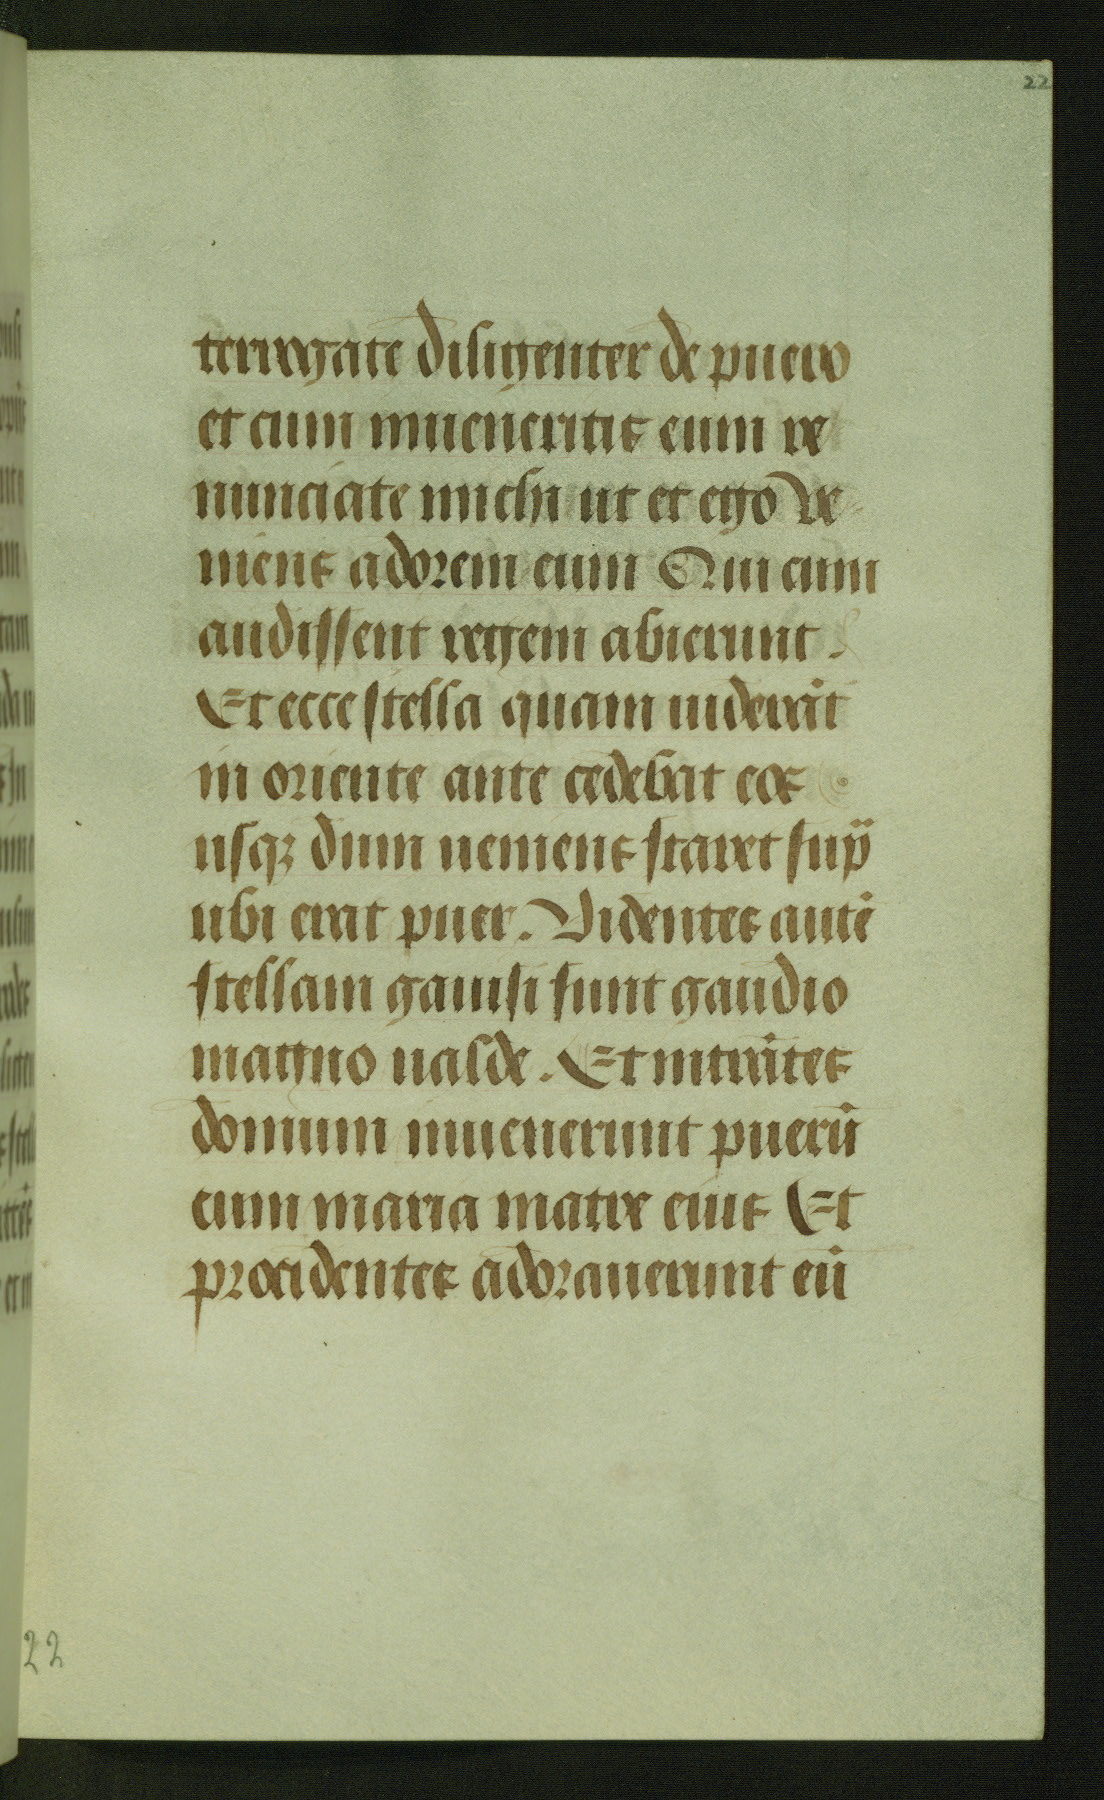 22
terrogate diligenter de puero
et cum inueneritis eum re
nunciate michi ut et ego ve
niens adorem eum Qui cum
audissent regem abierunt.
Et ecce stella quam uiderāt
in oriente ante cedebat eos
usq; dum ueniens staret sup̄
ubi erat puer. Videntes autē
stellam gauisi sunt gaudio
magno ualde. Et intrātes
domum inuenerunt puerū
cum maria matre eius Et
procidentes adorauerunt eū
22